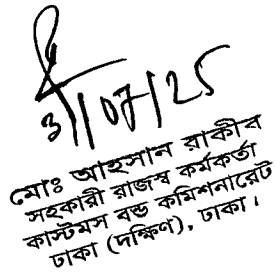 ৩১/07/25
মোঃ আহসান রাকীব
সহকারী রাজস্ব কর্মকর্তা
কাস্টমস বন্ড কমিশনারেট
ঢাকা (দক্ষিণ), ঢাকা।